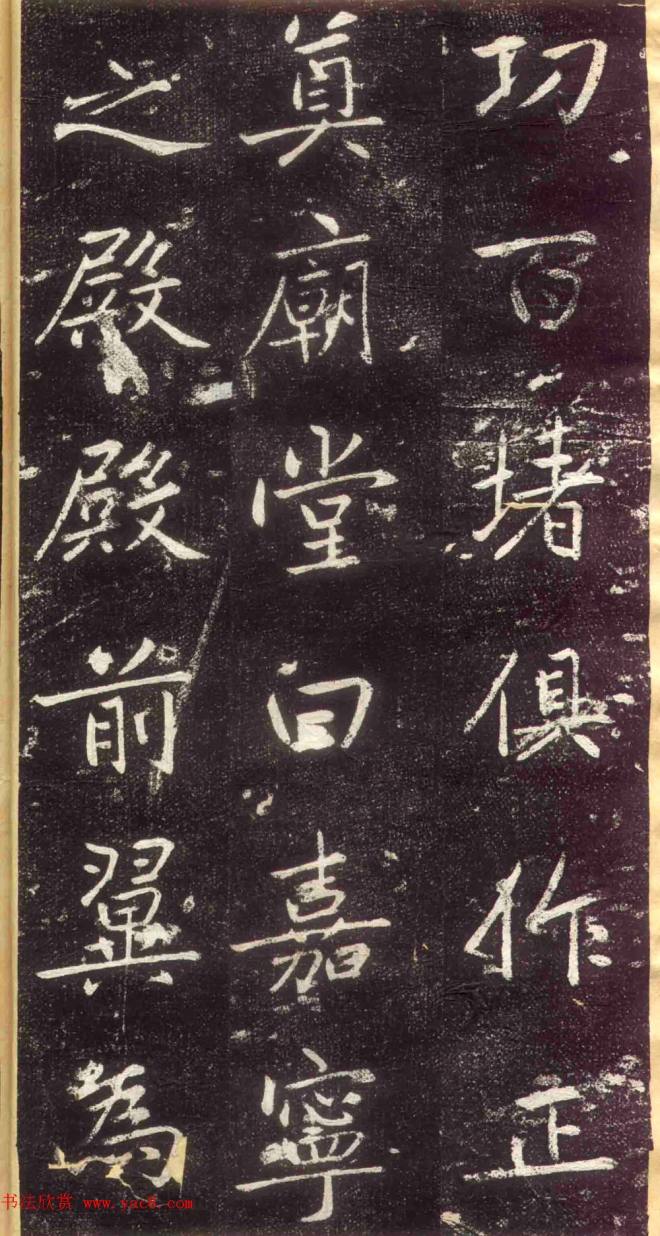 功百堵俱作正
奠廟堂曰嘉寧
之殿殿前翼為
书法欣赏 www.yac8.com